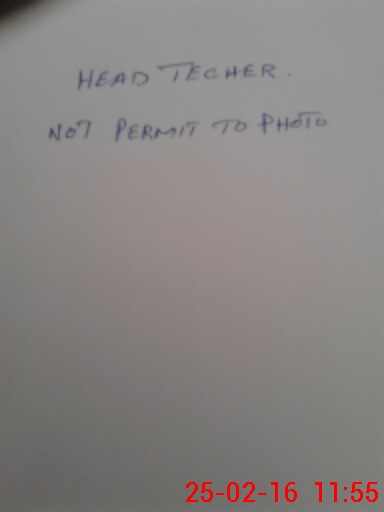 HEAD TECHER.
NOT PERMIT TO PHOTO
25-02-16 11:55